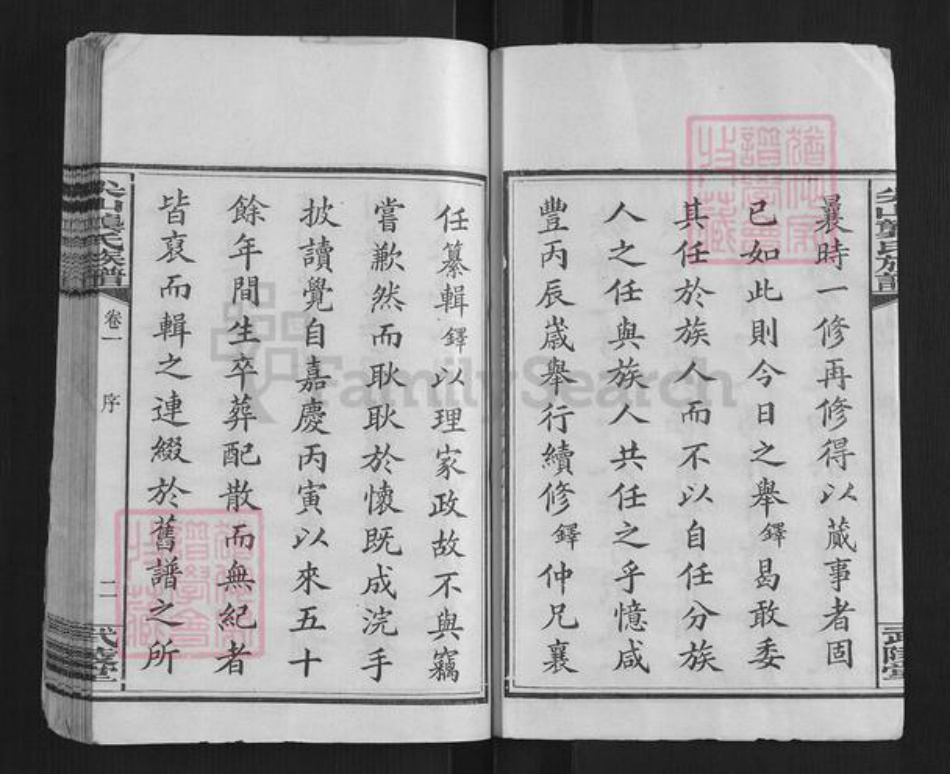 曩時一修再修得以蕆事者固
已如此則今日之舉鐸曷敢委
其任於族人而不以自任分族
人之任與族人共任之乎憶咸
豐丙辰嵗舉行續修鐸仲兄襄
任纂輯鐸以理家政故不與竊
嘗歉然而耿耿於懷既成浣手
披讀覺自嘉慶丙寅以來五十
餘年間生卒葬配散而無紀者
皆裒而輯之連綴於舊譜之所
氏族譜
卷一
序
二
武陵堂
FamilySearch